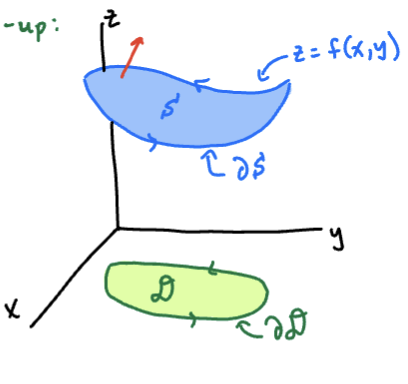 -up:
z
z = f(x,y)
S
∂S
y
D
x
∂D